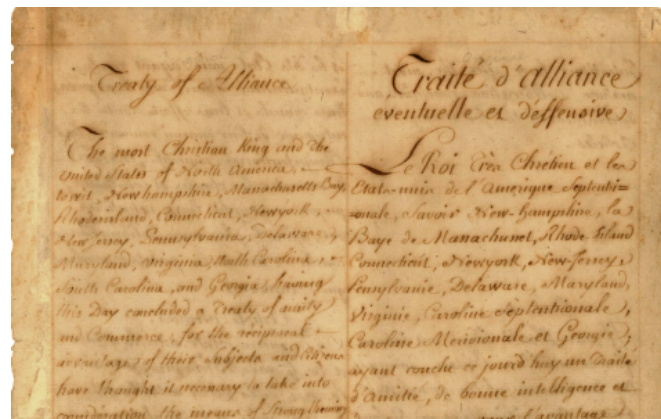 Treaty of Alliance
The most Christian King and the
United States of North America,
to wit, Newhampshire, Massachusetts Bay,
Rhodeisland, Connecticut, Newyork,
New Jersey, Pennsylvania, Delaware,
Maryland, Virginia, North Carolina,
South Carolina, and Georgia, having
this Day concluded a Treaty of amity
and Commerce, for the reciprocal
advantage of their Subjects and Citizens
have thought it necessary to take into
consideration the means of Strengthening
Traité d'alliance
eventuelle et déffensive
Le Roi très Chrétien et les
Etats-unis de l'Amerique Septentri=
=onale, Savoir New-hampshire, la
Baye de Massachusset, Rhode Island
Connecticut, Newyork, New-Jersey,
Pensylvanie, Delaware, Maryland,
Virginie, Caroline Septentionale,
Caroline Meridionale et Georgie,
ayant conclu ce jourd'huy un Traité
d'Amitié, de bonne intelligence et
avantage